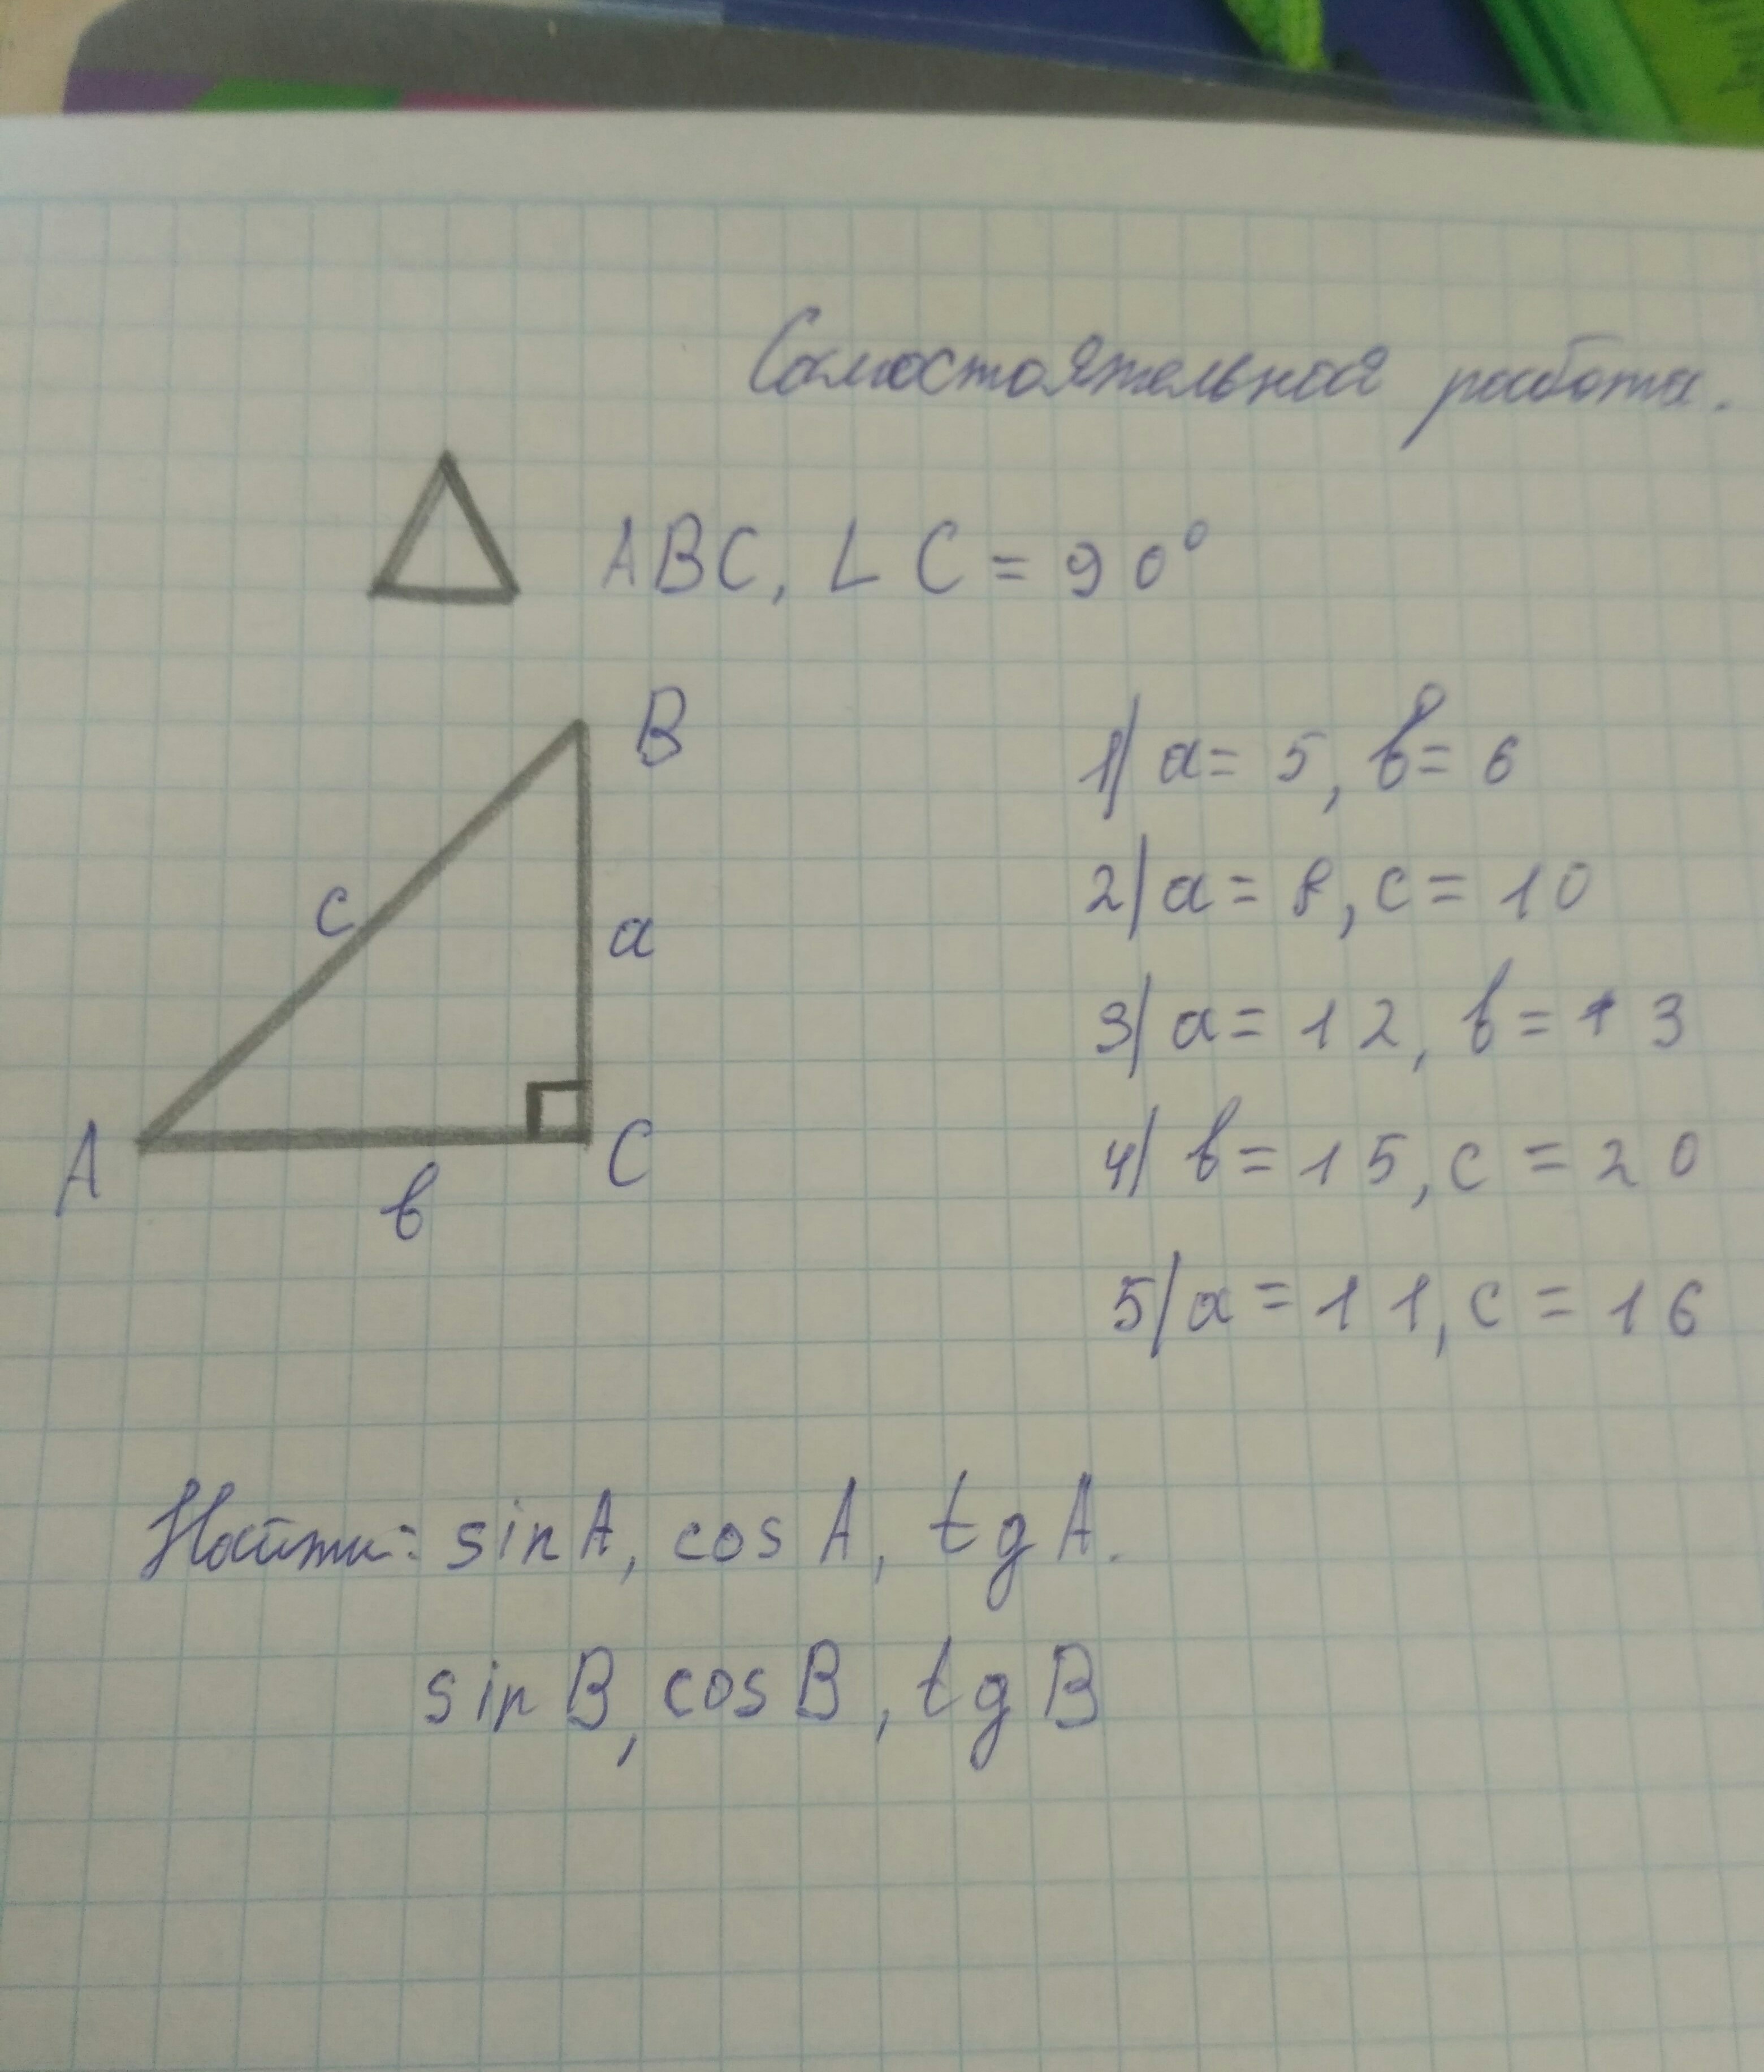 Самостоятельная работа.
△ ABC, ∠ C = 90°
B
c
a
A
b
C
1) a = 5, b = 6
2) a = 8, c = 10
3) a = 12, b = 13
4) b = 15, c = 20
5) a = 11, c = 16
Найти: sin A, cos A, tg A.
sin B, cos B, tg B